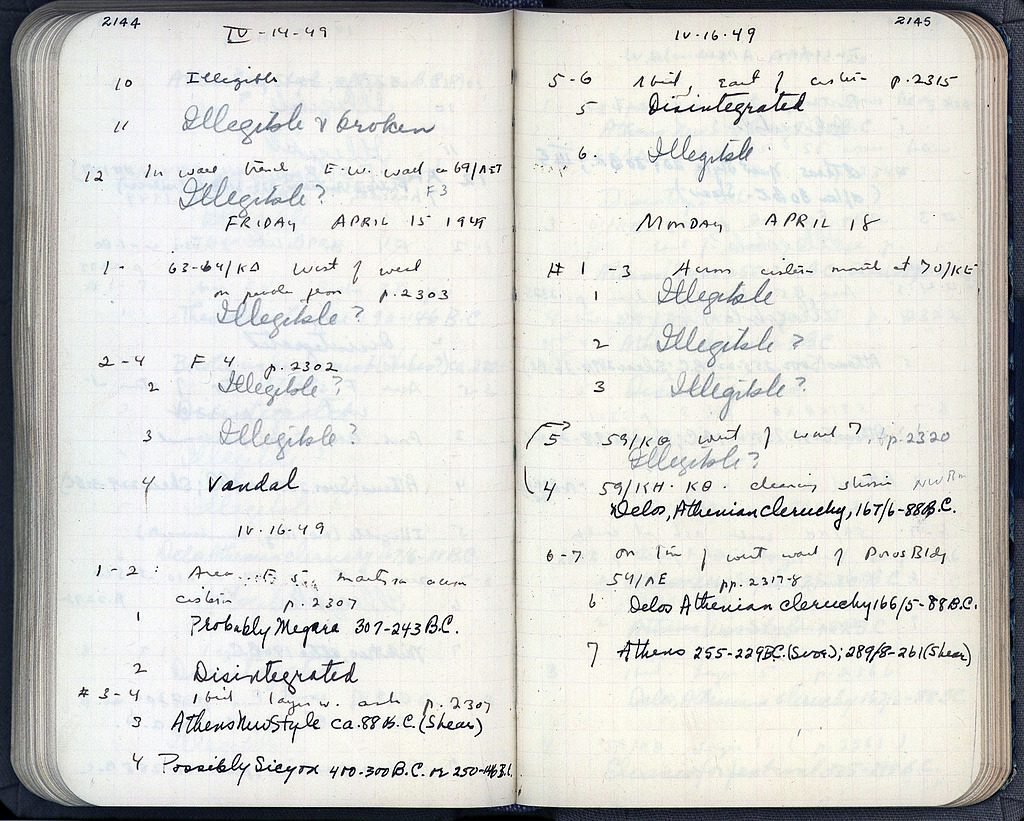 2144
IV-14-49
10 Illegible
11 Illegible & broken
12 In wall trench E-W. wall ca 69/
Illegible? F3
FRIDAY APRIL 15 1949
1- 63-64/KΔ West of well
on p.2303
Illegible?
2-4 F 4 p.2302
2 Illegible?
3 Illegible?
4 Vandal
IV-16-49
1-2: Area
cistern p.2307
1 Probably Megara 307-243 B.C.
2 Disintegrated
# 3-4 Ibid layer w. ash p.2307
3 Athens New Style ca. 88 B.C. (Shear)
4 Possibly Sicyon 400-300 B.C. or 250-146 B.C.
2145
IV-16-49
5-6 Ibid, east of cistern p.2315
5 Disintegrated
6 Illegible
MONDAY APRIL 18
# 1-3 Across cistern mouth at 70/KE
1 Illegible
2 Illegible?
3 Illegible?
5 59/KΘ west of wall 7, p.2320
Illegible?
4 59/KH-KΘ. cleaning
Delos, Athenian cleruchy, 167/6-88 B.C.
6-7 On line of west wall of Poros Bldg
54/ΛE pp.2317-8
6 Delos Athenian cleruchy 166/5-88 B.C.
7 Athens 255-229 B.C. (Svor.); 289/8-261 (Shear)